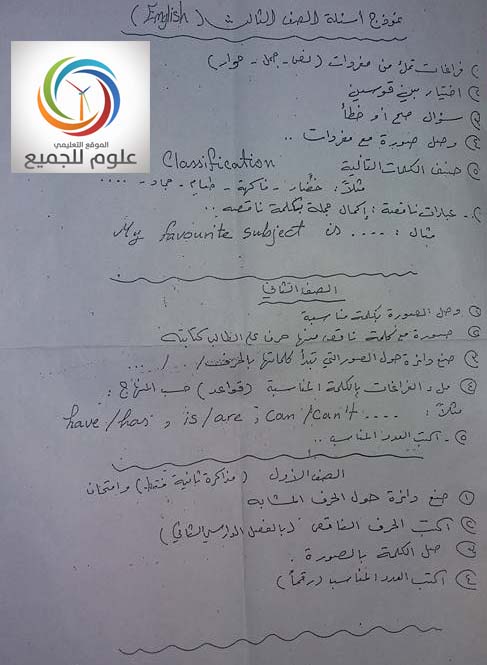 نموذج اسئلة الصف الثالث (English)
الموقع التعليمي
علوم للجميع
١) فراغات تملأ من مفردات (نص - جمل - حوار)
٢) اختيار بين قوسين
٣) سؤال صح أو خطأ
٤) وصل صورة مع مفردات ..
٥) صنف الكلمات التالية Classification
مثلاً: خضار - فاكهة - طعام - ....
٦ - عبارات ناقصة : إكمال جملة بكلمة ناقصة ..
مثال : My favourite subject is ....
الصف الثاني
١) وصل الصورة بكلمة مناسبة
٢) صورة مع كلمة ناقص منها حرف على الطالب كتابته
٣) ضع دائرة حول الصور التي تبدأ كلماتها بالحرف / ... / ...
٤) ملء الفراغات بالكلمة المناسبة (قواعد) حسب المنهاج :
مثلاً : .... have/has , is/are ; can/can't
٥ - اكتب العدد المناسب ..
الصف الأول (مذاكرة ثانية فقط) وامتحان
١) ضع دائرة حول الحرف المشابه
٢) اكتب الحرف الناقص (بالفصل الدراسي الثاني)
٣) صل الكلمة بالصورة .
٤) اكتب العدد المناسب (رقماً)